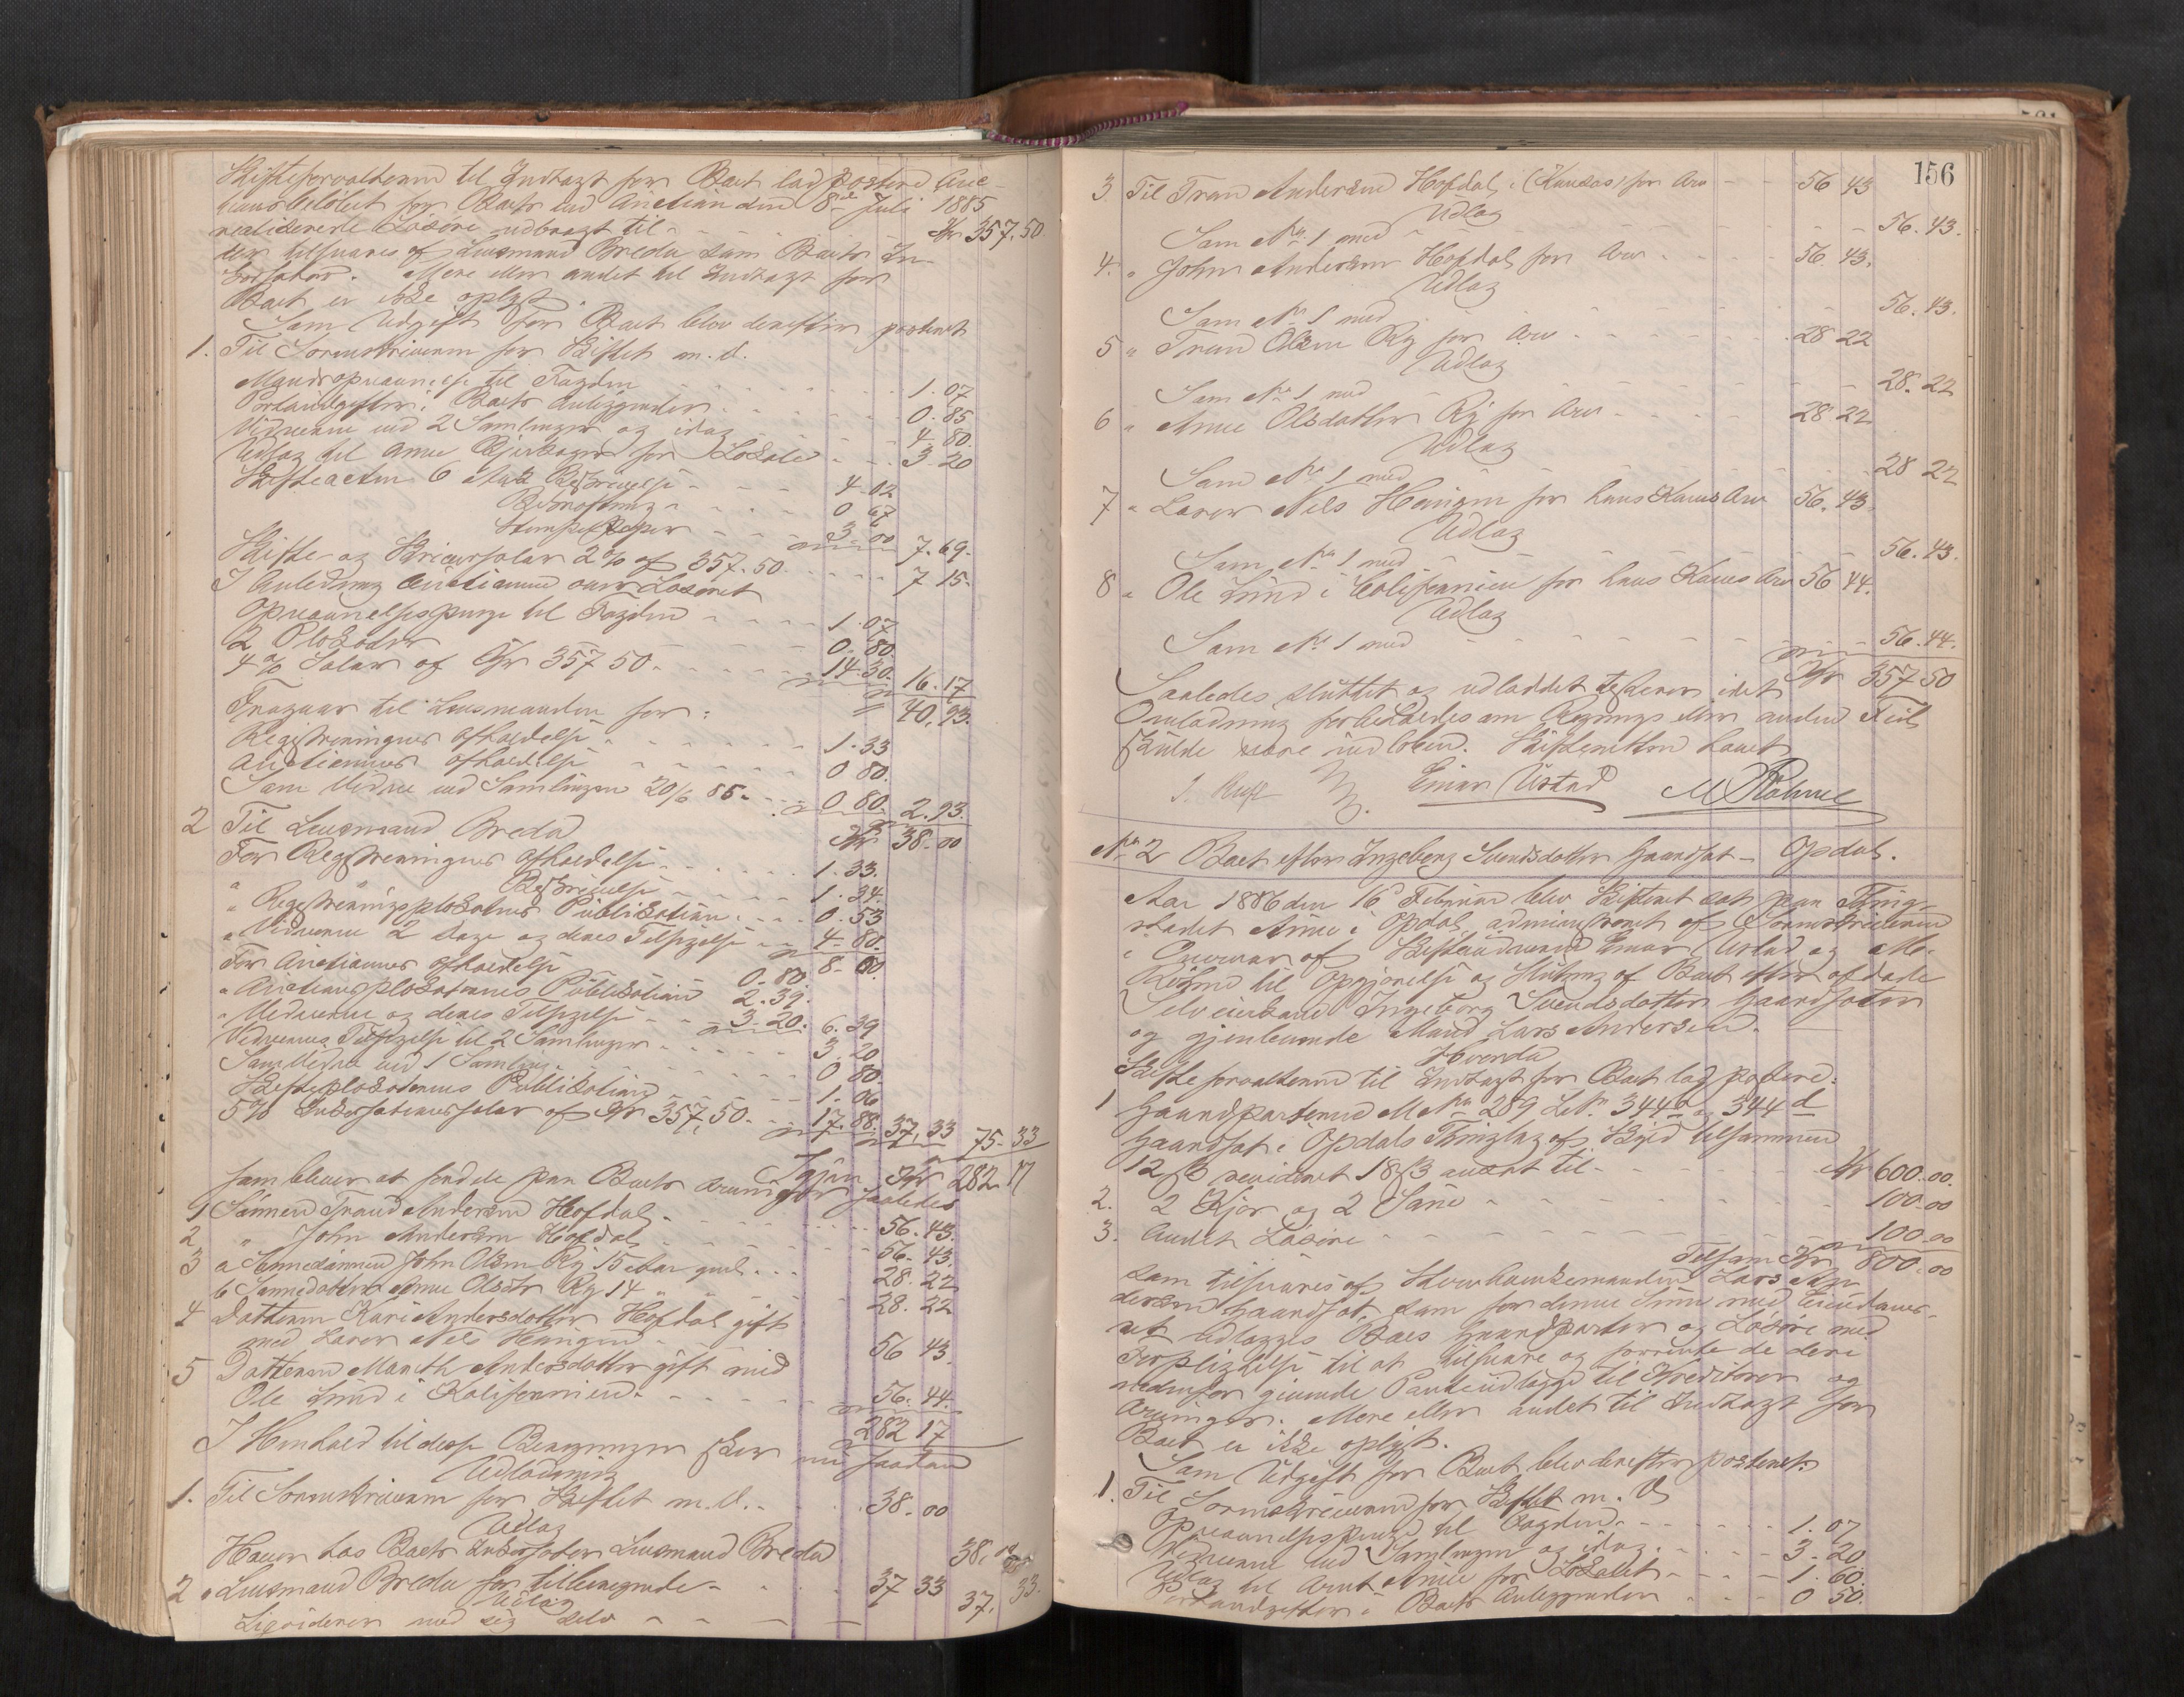 Skifteforvalteren til Indtægt for Boet lod postere Auc-
tionsbeløbet for Boets ved Auction den 8de Juli 1885
realiserede Løsøre udbragt til - - - Kr 357.50
der tilsvares af Lensmand Breda som Boets In-
kassator. Mere eller andet til Indtægt for
Boet er ikke oplyst.
Som Udgift for Boet blev derefter posteret
1. Til Sorenskriveren for Skiftet m. v.
Mandsopnævnelse til Fogden 1.07
Portoudgifter i Boets Anliggender 0.85
Vidnerne ved 2 Samlinger og idag 4.80.
Udlæg til Arne for Lokale 3.20
Skifteacten 6 Ark Beskrivelse 4.02
0 67
Stemplet Papir 3.00 7.69.
Skifte- og Skriversalær 2% af 357.50 7 15.
I Anledning Auctionen over Løsøret
Opnævnelsespenge til Fogden 1.07
2 Plakater 0.80.
4% Salær af Kr 357 50 14.30. 16.17
40.93.
Fragaar til Lensmanden for:
Registreringens Afholdelse 1.33
Auctionens Afholdelse 0 80.
Som Vidne ved Samlingen 20/6 85 0 80. 2.93.
Kr 38.00
2 Til Lensmand Breda
For Registreringens Afholdelse 1.33.
" Beskrivelse 1.34.
" Registreringsplakatens Publikation 0.53
" Vidnerne 2 Dage og deres Tilsigelse 4.80.
8-00.
For Auctionens Afholdelse 0.80.
" Auctionsplakaternes Publikation 2.39.
" Vidnerne og deres Tilsigelse 3.20. 6.39
Vidnernes Tilsigelse til 2 Samlinger 3 20
Som Vidne ved 1 Samling 0 80.
Skifteplakaternes Publikation 1.06
5% Inkassationssalær af Kr 357,50 17.88. 37,33 75.33
Igjen Kr 282.17
som bliver at fordele paa Boets Arvinger saaledes
1 Sønnen Trond Andersen Hofdal 56.43.
2 " John Andersen Hofdal 56.43
3 a Sønnesønnen John Olsen Ry 15 Aar gml. 28.22
b Sønnedatteren Anne Olsdtr Ry 14 " 28.22
4 Datteren Kari Andersdatter Hofdal gift
med Lærer Nils Haugen 56 43
5 Datteren Marith Andersdatter gift med
Ole Lund i Kalifornien 56.44.
282 17
I Henhold til disse Beregninger sker nu saadan
Udlodning
1. Til Sorenskriveren for Skiftet m. v. 38.00
Udlæg
Haves hos Boets Inkassator Lensmand Breda 38.00
2 " Lensmand Breda for tilkommende 37 33
Udlæg
Liqviderer med sig selv 37. 33.
156
3. Til Tron Andersen Hofdal (Kansas) for Arv 56 43
Udlæg
Som No 1 med 56.43.
4. " John Andersen Hofdal for Arv 56.43.
Udlæg
Som No 1 med 56.43.
5 " Trond Olsen Ry for Arv 28 22
Udlæg
Som No 1 med 28.22
6 " Anne Olsdatter Ry for Arv 28 22
Udlæg
Som No 1 med 28 22
7 " Lærer Nils Haugen for hans Kones Arv 56.43.
Udlæg
Som No 1 med 56.43.
8 " Ole Lund i Califonnien for hans Kones Arv 56 44.
Udlæg
Som No 1 med 56.44.
Kr 357 50
Saaledes sluttet og udloddet idet
Omlodning forbeholdes om Regnings eller anden Feil
skulde være indløben. Skifteretten hævet
Einar Ustad
No 2 Boet efter Ingeborg Svendsdatter Gaardsat - Opdal.
Aar 1886 den 16 Februar blev Skifteret sat paa Thing-
stedet Aune i Opdal, administreret af Sorenskriveren
i Overvær af Skiftevidnerne Einar Ustad og M.
til Opgjørelse og Slutning af Boet efter afdøde
Selveierkone Ingeborg Svendsdatter
og gjenlevende Mand Lars Andersen.
Hvorda
Skifteforvalteren til Indtægt for Boet lod postere:
1 Gaardparterne M No 289 L No 344 a og 344 d
i Opdals Thinglag af Skyld tilsammen
12 til Kr 600.00.
2. 2 Kjør og 2 100.00
3. Andet Løsøre 100.00
Tilsam Kr 800.00
som tilsvares af Lars An-
dersen som for denne Sum med Eiendoms-
ret udlægges Boets Gaardparter og Løsøre med
Forpligtelse til at tilsvare og forrente de dem
nedenfor givende Panteudlægg til Kreditorer og
Arvinger. Mere eller andet til Indtægt for
Boet er ikke oplyst.
Som Udgift for Boet blev derefter posteret:
1. Til Sorenskriveren for Skiftet m. V
Opnævnelsespenge til Fogden 1.07
Vidnerne ved Samlingen og idag 3.20
Udlæg til Arnt Aune for Lokalet 1.60.
Portoudgifter i Boets Anliggender 0 50.